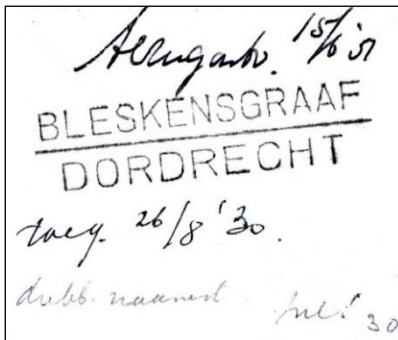 15/6 '31
BLESKENSGRAAF
DORDRECHT
toeg. 26/8 '30.
dubb. naamst. juli 30